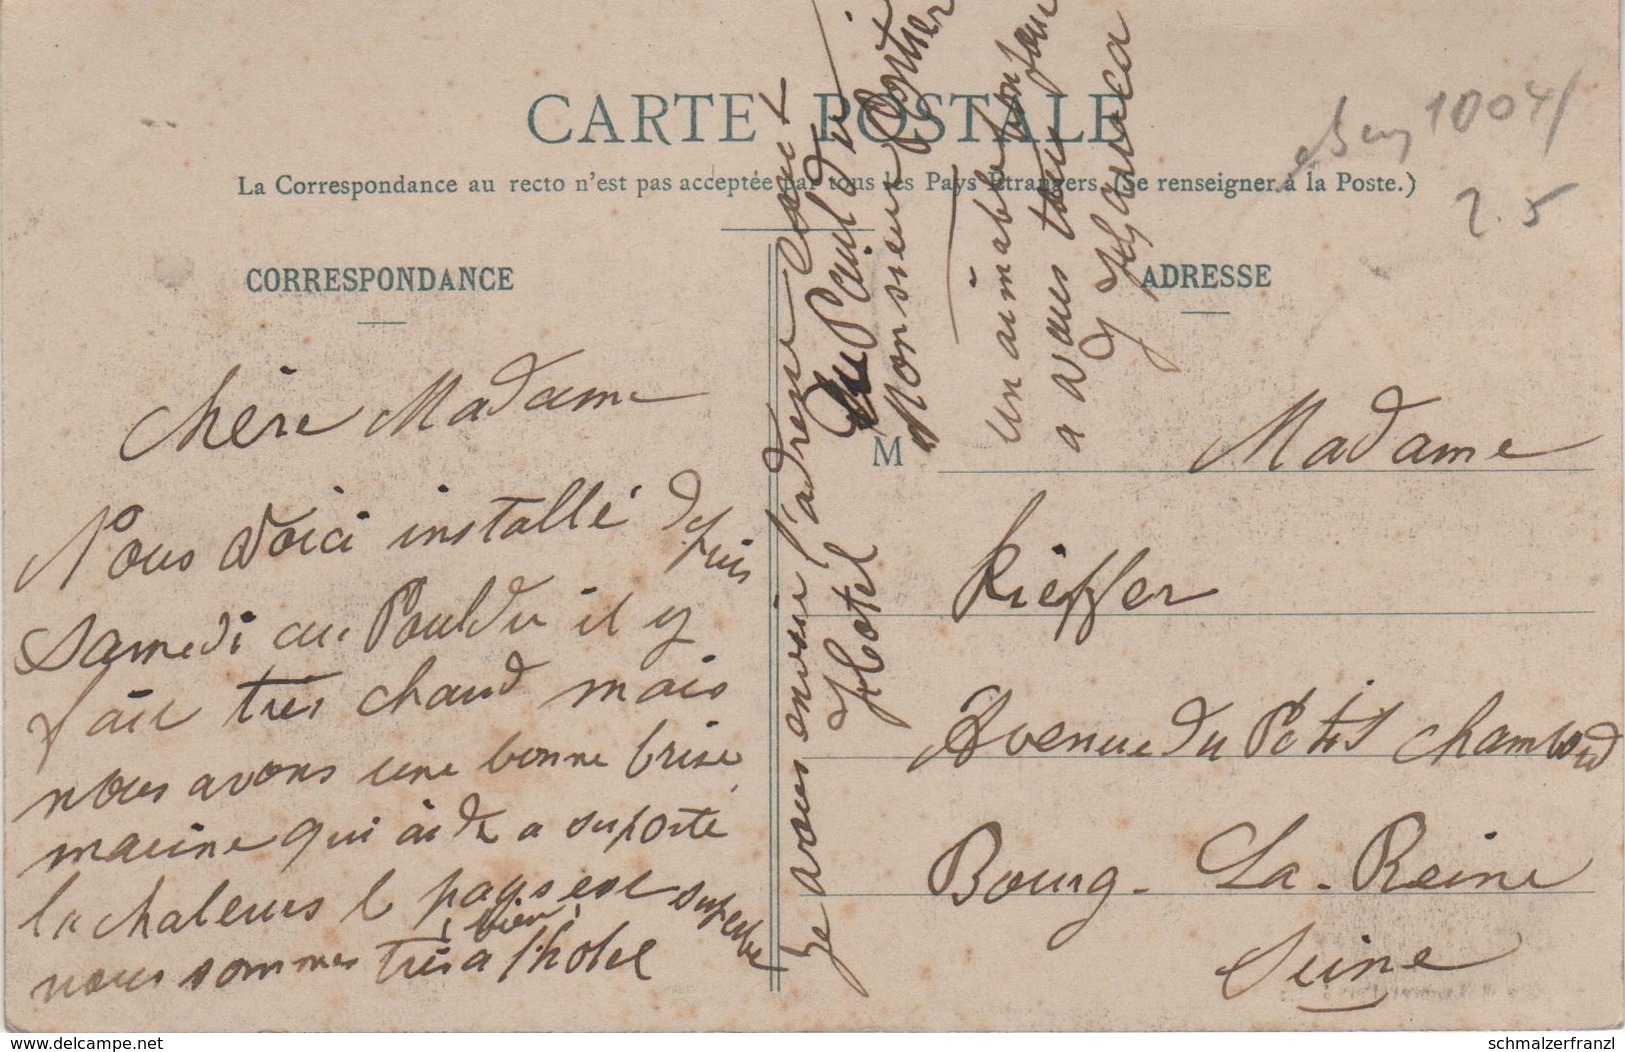 CARTE POSTALE
La Correspondance au recto n'est pas acceptée par tous les Pays Étrangers. (Se renseigner à la Poste.)
CORRESPONDANCE
ADRESSE
1004/
2.5
Chère Madame
Nous Voici installé depuis
Samedi au Pouldu il y
fait très chaud mais
nous avons une bonne brise
marine qui aide a suporté
la chaleurs le pays est superbe
nous sommes très bien a l'hotel
Je vous envoie l'adresse
Hotel du Pouldu
Monsieur Portier
un aimable bonjour
a vous tous
M
Madame
Kieffer
Avenue du Petit Chambord
Bourg-La-Reine
Seine
www.delcampe.net
schmalzerfranzl